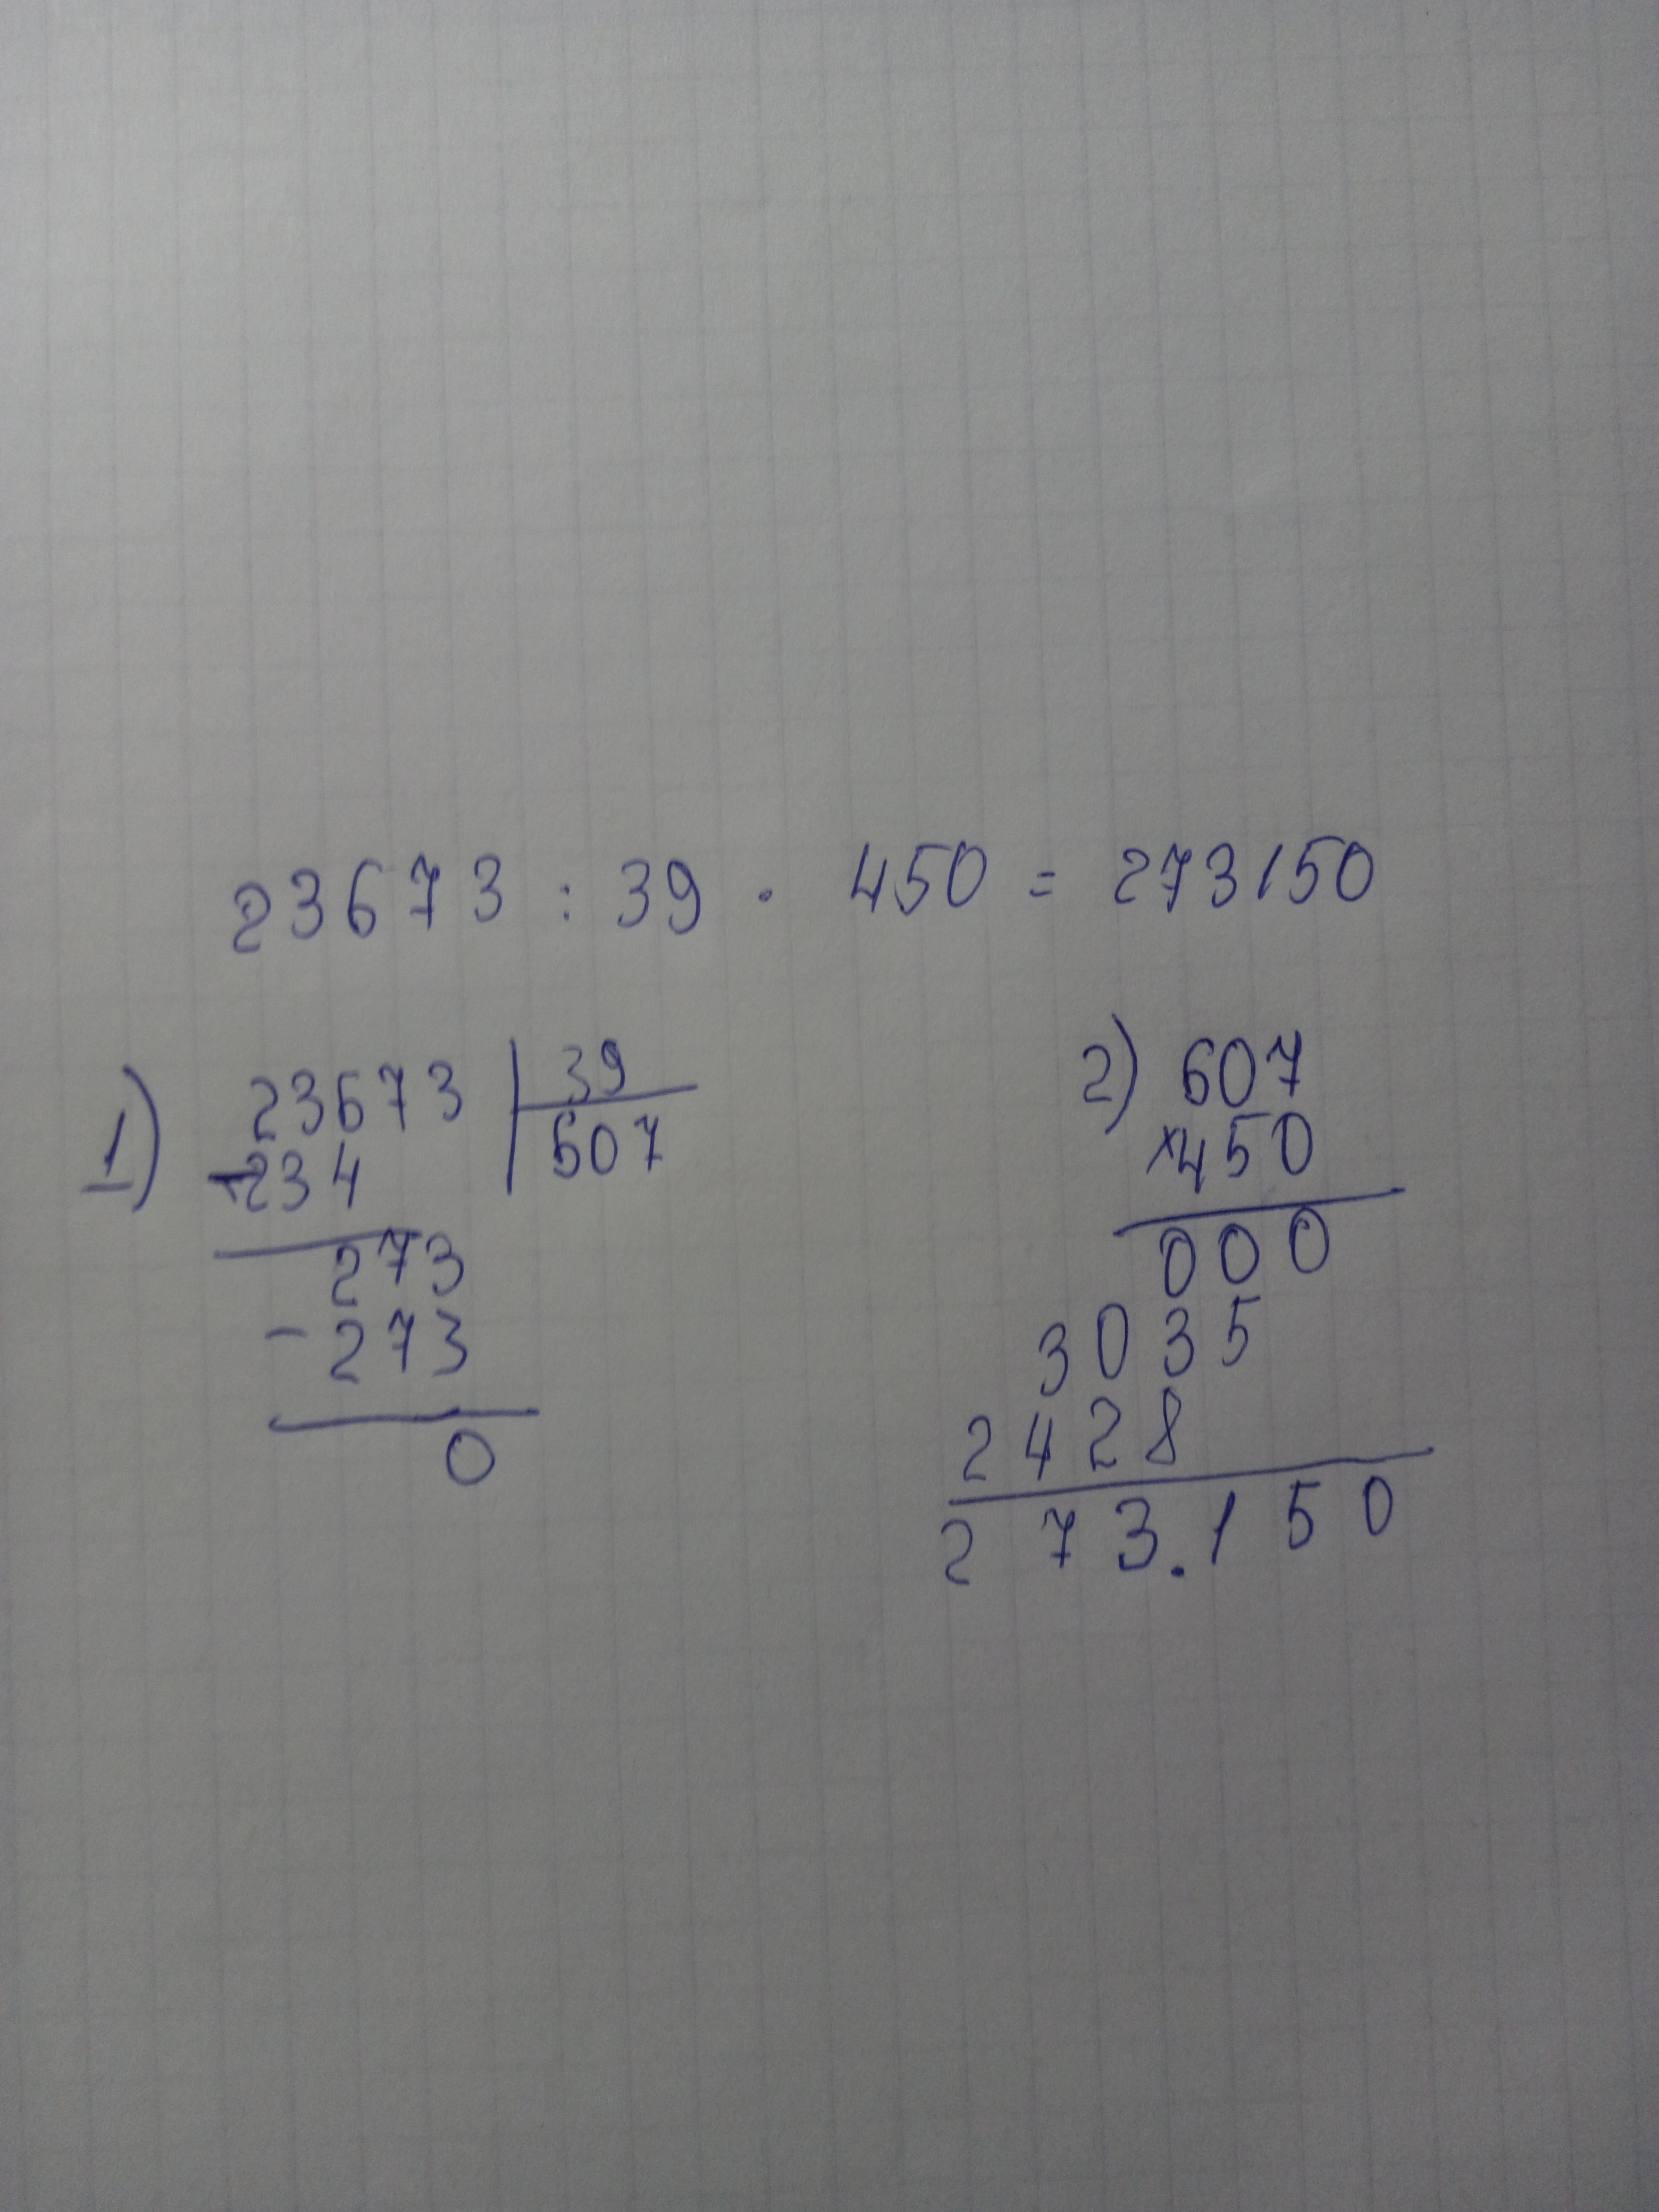 23673 : 39 · 450 = 273150
1) 23673 | 39
-234 607
273
-273
0
2) 607
×450
000
3035
2428
273.150